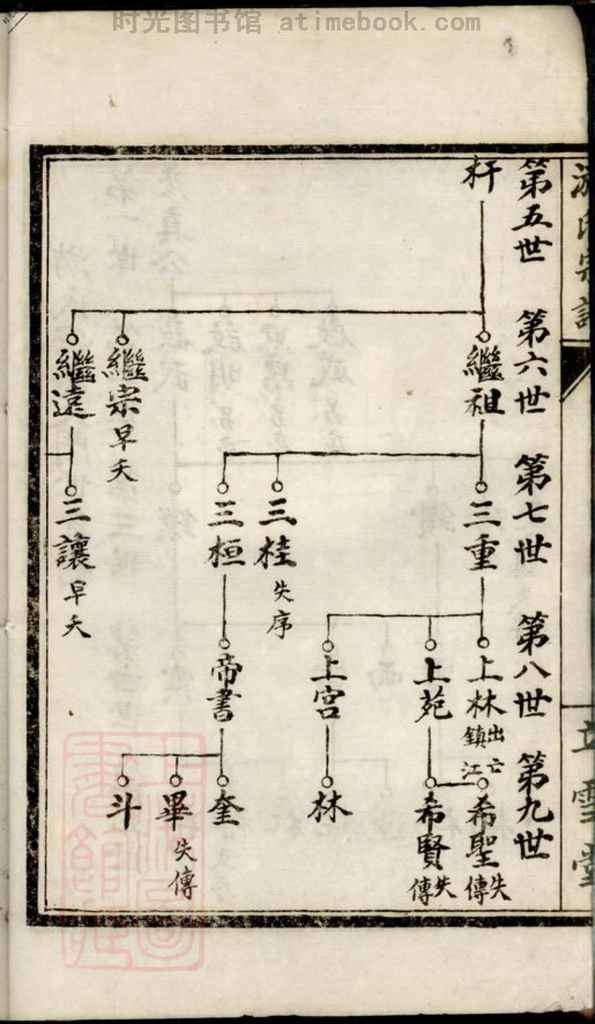 时光图书馆 atimebook.com
游氏宗譜
立雪堂
第五世
第六世
第七世
第八世
第九世
杆
繼祖
繼宗 早夭
繼遠
三重
三桂 失序
三桓
三讓 早夭
上林 出亡鎮江
上苑
上宮
帝書
希聖 失傳
希賢 失傳
林
奎
畢 失傳
斗
上海圖書館藏